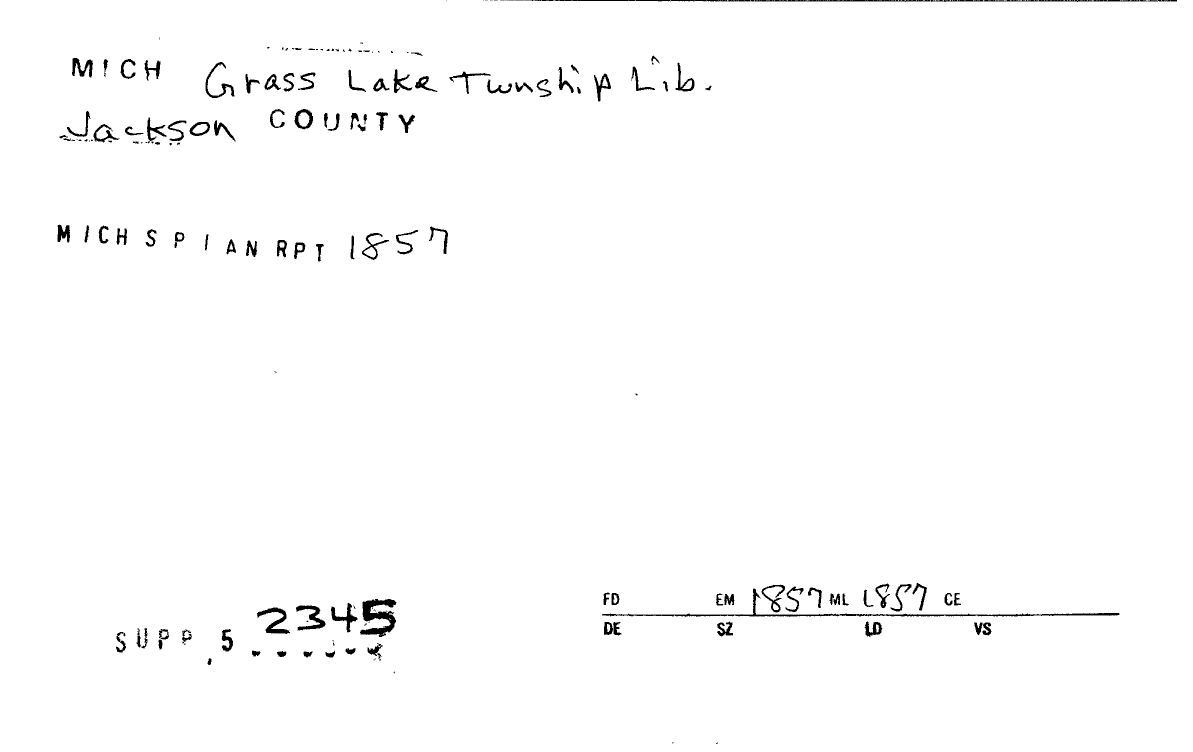 MICH Grass Lake Twnship Lib.
Jackson COUNTY
MICH S P I AN RPT 1857
SUPP. 5 2345
FD EM 1857 ML 1857 CE
DE SZ LD VS